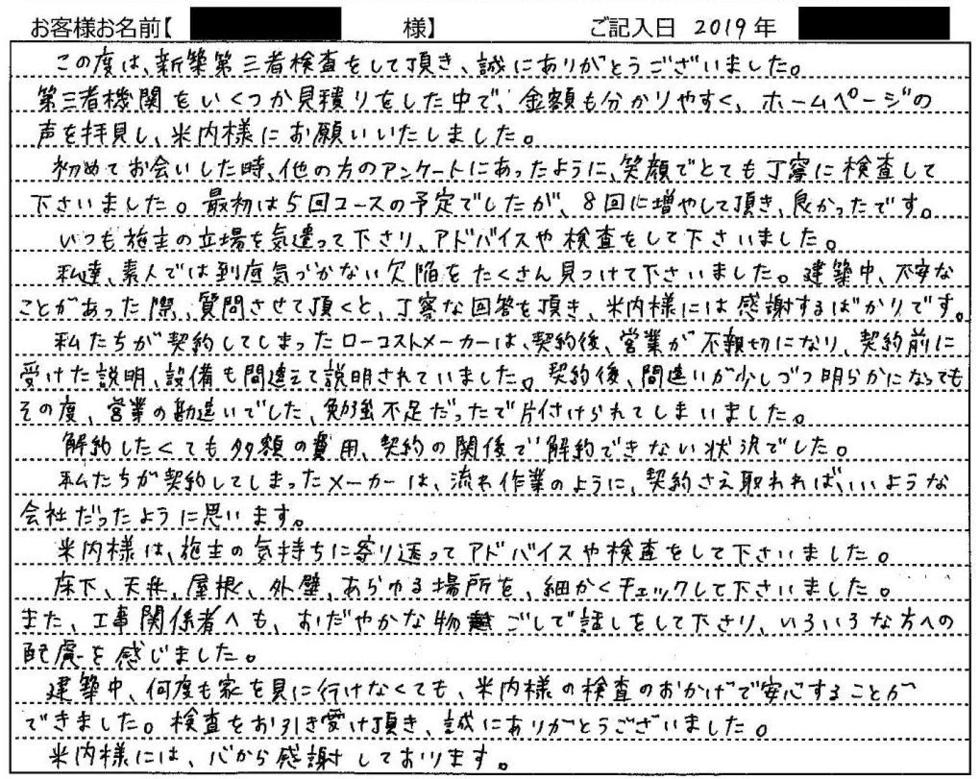 お客様お名前【 様】 ご記入日 2019年
この度は、新築第三者検査をして頂き、誠にありがとうございました。
第三者機関をいくつか見積りをした中で、金額も分かりやすく、ホームページの
声を拝見し、米内様にお願いいたしました。
初めてお会いした時、他の方のアンケートにあったように、笑顔でとても丁寧に検査して
下さいました。最初は5回コースの予定でしたが、8回に増やして頂き、良かったです。
いつも施主の立場を気遣って下さり、アドバイスや検査をして下さいました。
私達、素人では到底気づかない欠陥をたくさん見つけて下さいました。建築中、不安な
ことがあった際、質問させて頂くと、丁寧な回答を頂き、米内様には感謝するばかりです。
私たちが契約してしまったローコストメーカーは、契約後、営業が不親切になり、契約前に
受けた説明、設備も間違えて説明されていました。契約後、間違いが少しづつ明らかになっても
その度、営業の勘違いでした、勉強不足だったで片付けられてしまいました。
解約したくても多額の費用、契約の関係で解約できない状況でした。
私たちが契約してしまったメーカーは、流れ作業のように、契約さえ取れれば、いいような
会社だったように思います。
米内様は、施主の気持ちに寄り添ってアドバイスや検査をして下さいました。
床下、天井、屋根、外壁、あらゆる場所を、細かくチェックして下さいました。
また、工事関係者へも、おだやかな物腰ごしで話しをして下さり、いろいろな方への
配慮を感じました。
建築中、何度も家を見に行けなくても、米内様の検査のおかげで安心することが
できました。検査をお引き受け頂き、誠にありがとうございました。
米内様には、心から感謝しております。